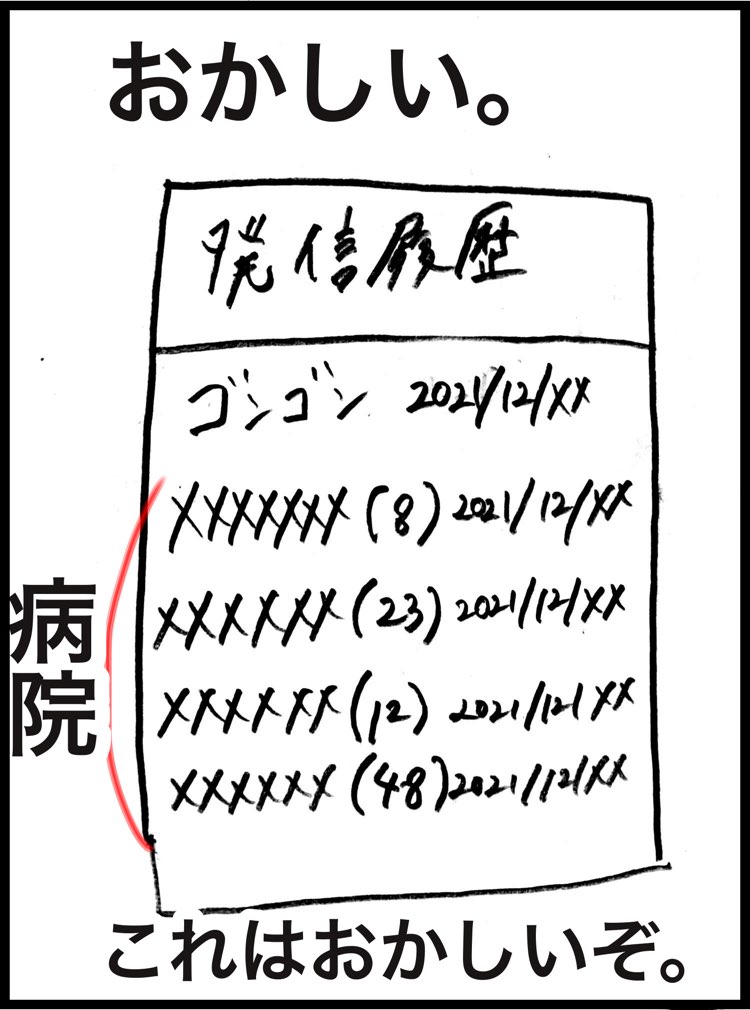 おかしい。
発信履歴
ゴンゴン 2021/12/XX
XXXXXXX (8) 2021/12/XX
XXXXXX (23) 2021/12/XX
XXXXXX (12) 2021/12/XX
XXXXXX (48) 2021/12/XX
病院
これはおかしいぞ。